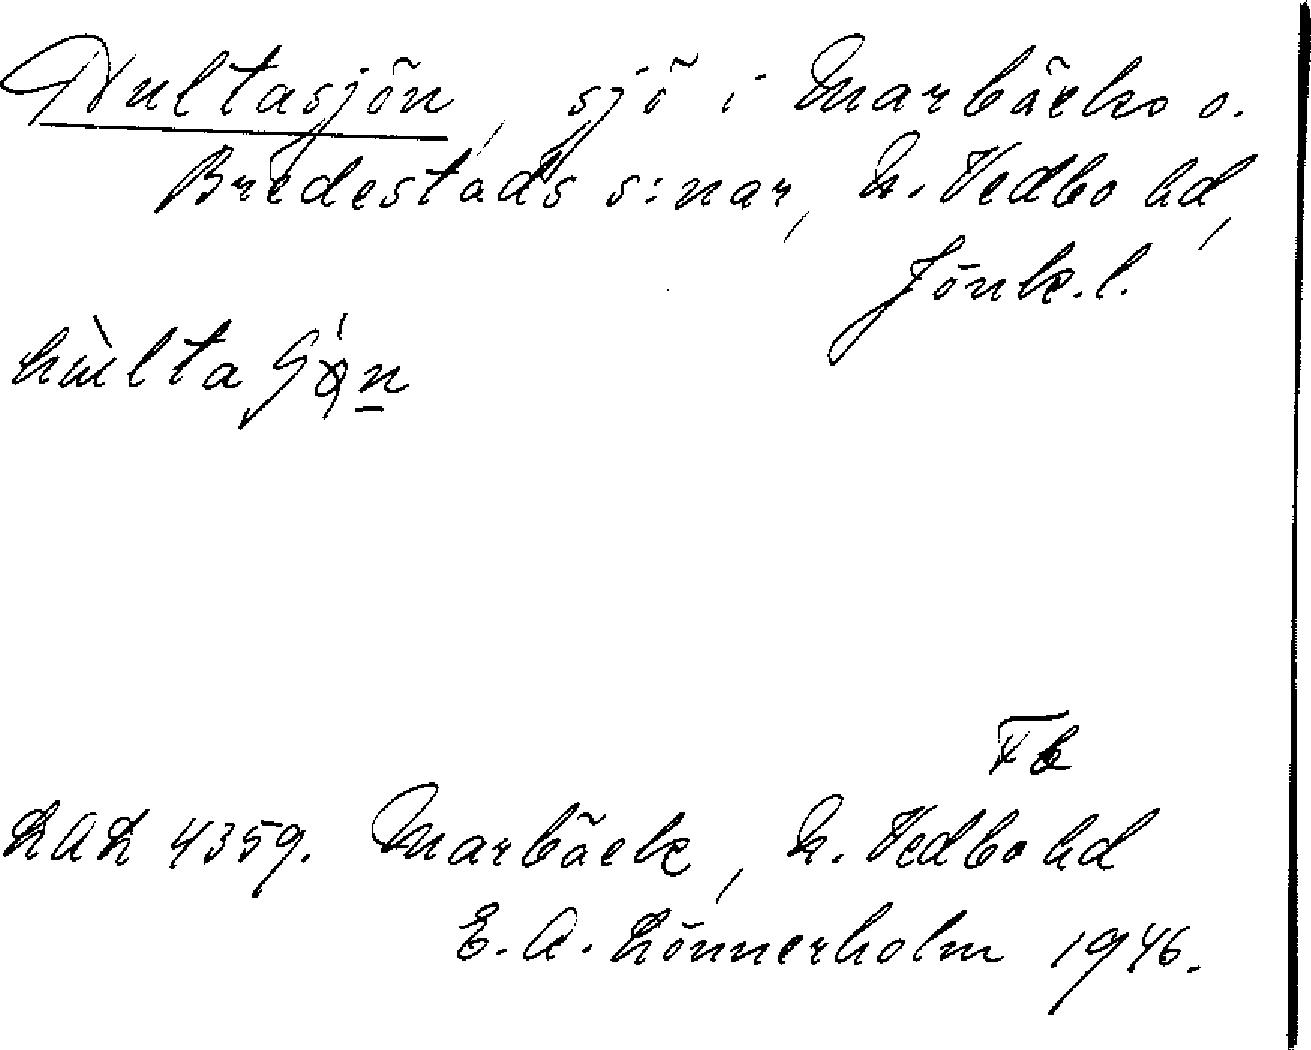 Hultasjön, sjö i Marbäcks o.
Bredestads s:nar, N. Vedbo hd,
Jönk. l.
Fb
LAL 4359. Marbäck, N. Vedbo hd
E. A. Lönnerholm 1946.